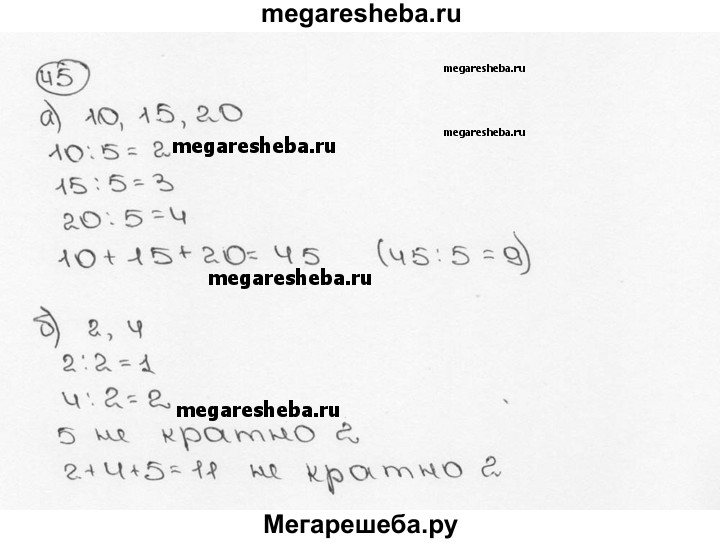 megaresheba.ru
45
megaresheba.ru
а) 10, 15, 20
megaresheba.ru
10:5=2
megaresheba.ru
15:5=3
20:5=4
10+15+20=45 (45:5=9)
megaresheba.ru
б) 2, 4
2:2=1
4:2=2
megaresheba.ru
5 не кратно 2
2+4+5=11 не кратно 2
Мегарешеба.ру